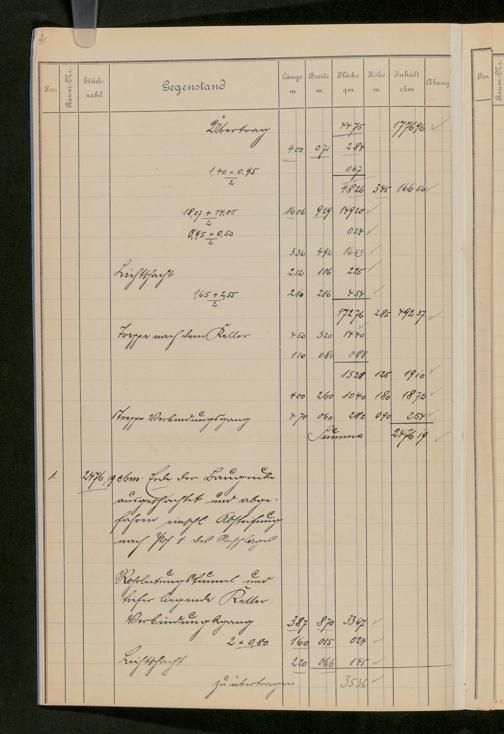 2
Pos. Raum-Nr. Stückzahl Gegenstand Länge m Breite m Fläche qm Höhe m Inhalt cbm Abzug
Übertrag 4475 177696
400 071 284
1,40 × 0,95 / 2 067
4826 345 16650
18,07 + 14,05 / 2 1606 929 14920
0,95 × 0,50 / 2 024
336 492 1653
Lichtschacht 212 106 225
1,65 + 2,55 / 2 210 216 454
17276 285 49237
Treppe nach dem Keller 450 320 1440
110 080 088
1528 125 1910
400 260 1040 180 1872
Treppe Verbindungsgang 470 060 282 090 254
Summa 247619
1. 2476,19 cbm Erde der Baugrube
ausgeschachtet und abge-
fahren einschl. Absteifung
nach Pos 1 des
Rohrleitungstunnel und
tiefer liegende Keller
Verbindungsgang 387 870 3367
2 × 0,80 160 015 024
Lichtschacht 220 066 145
zu übertragen 3536
Pos.
Raum-Nr.